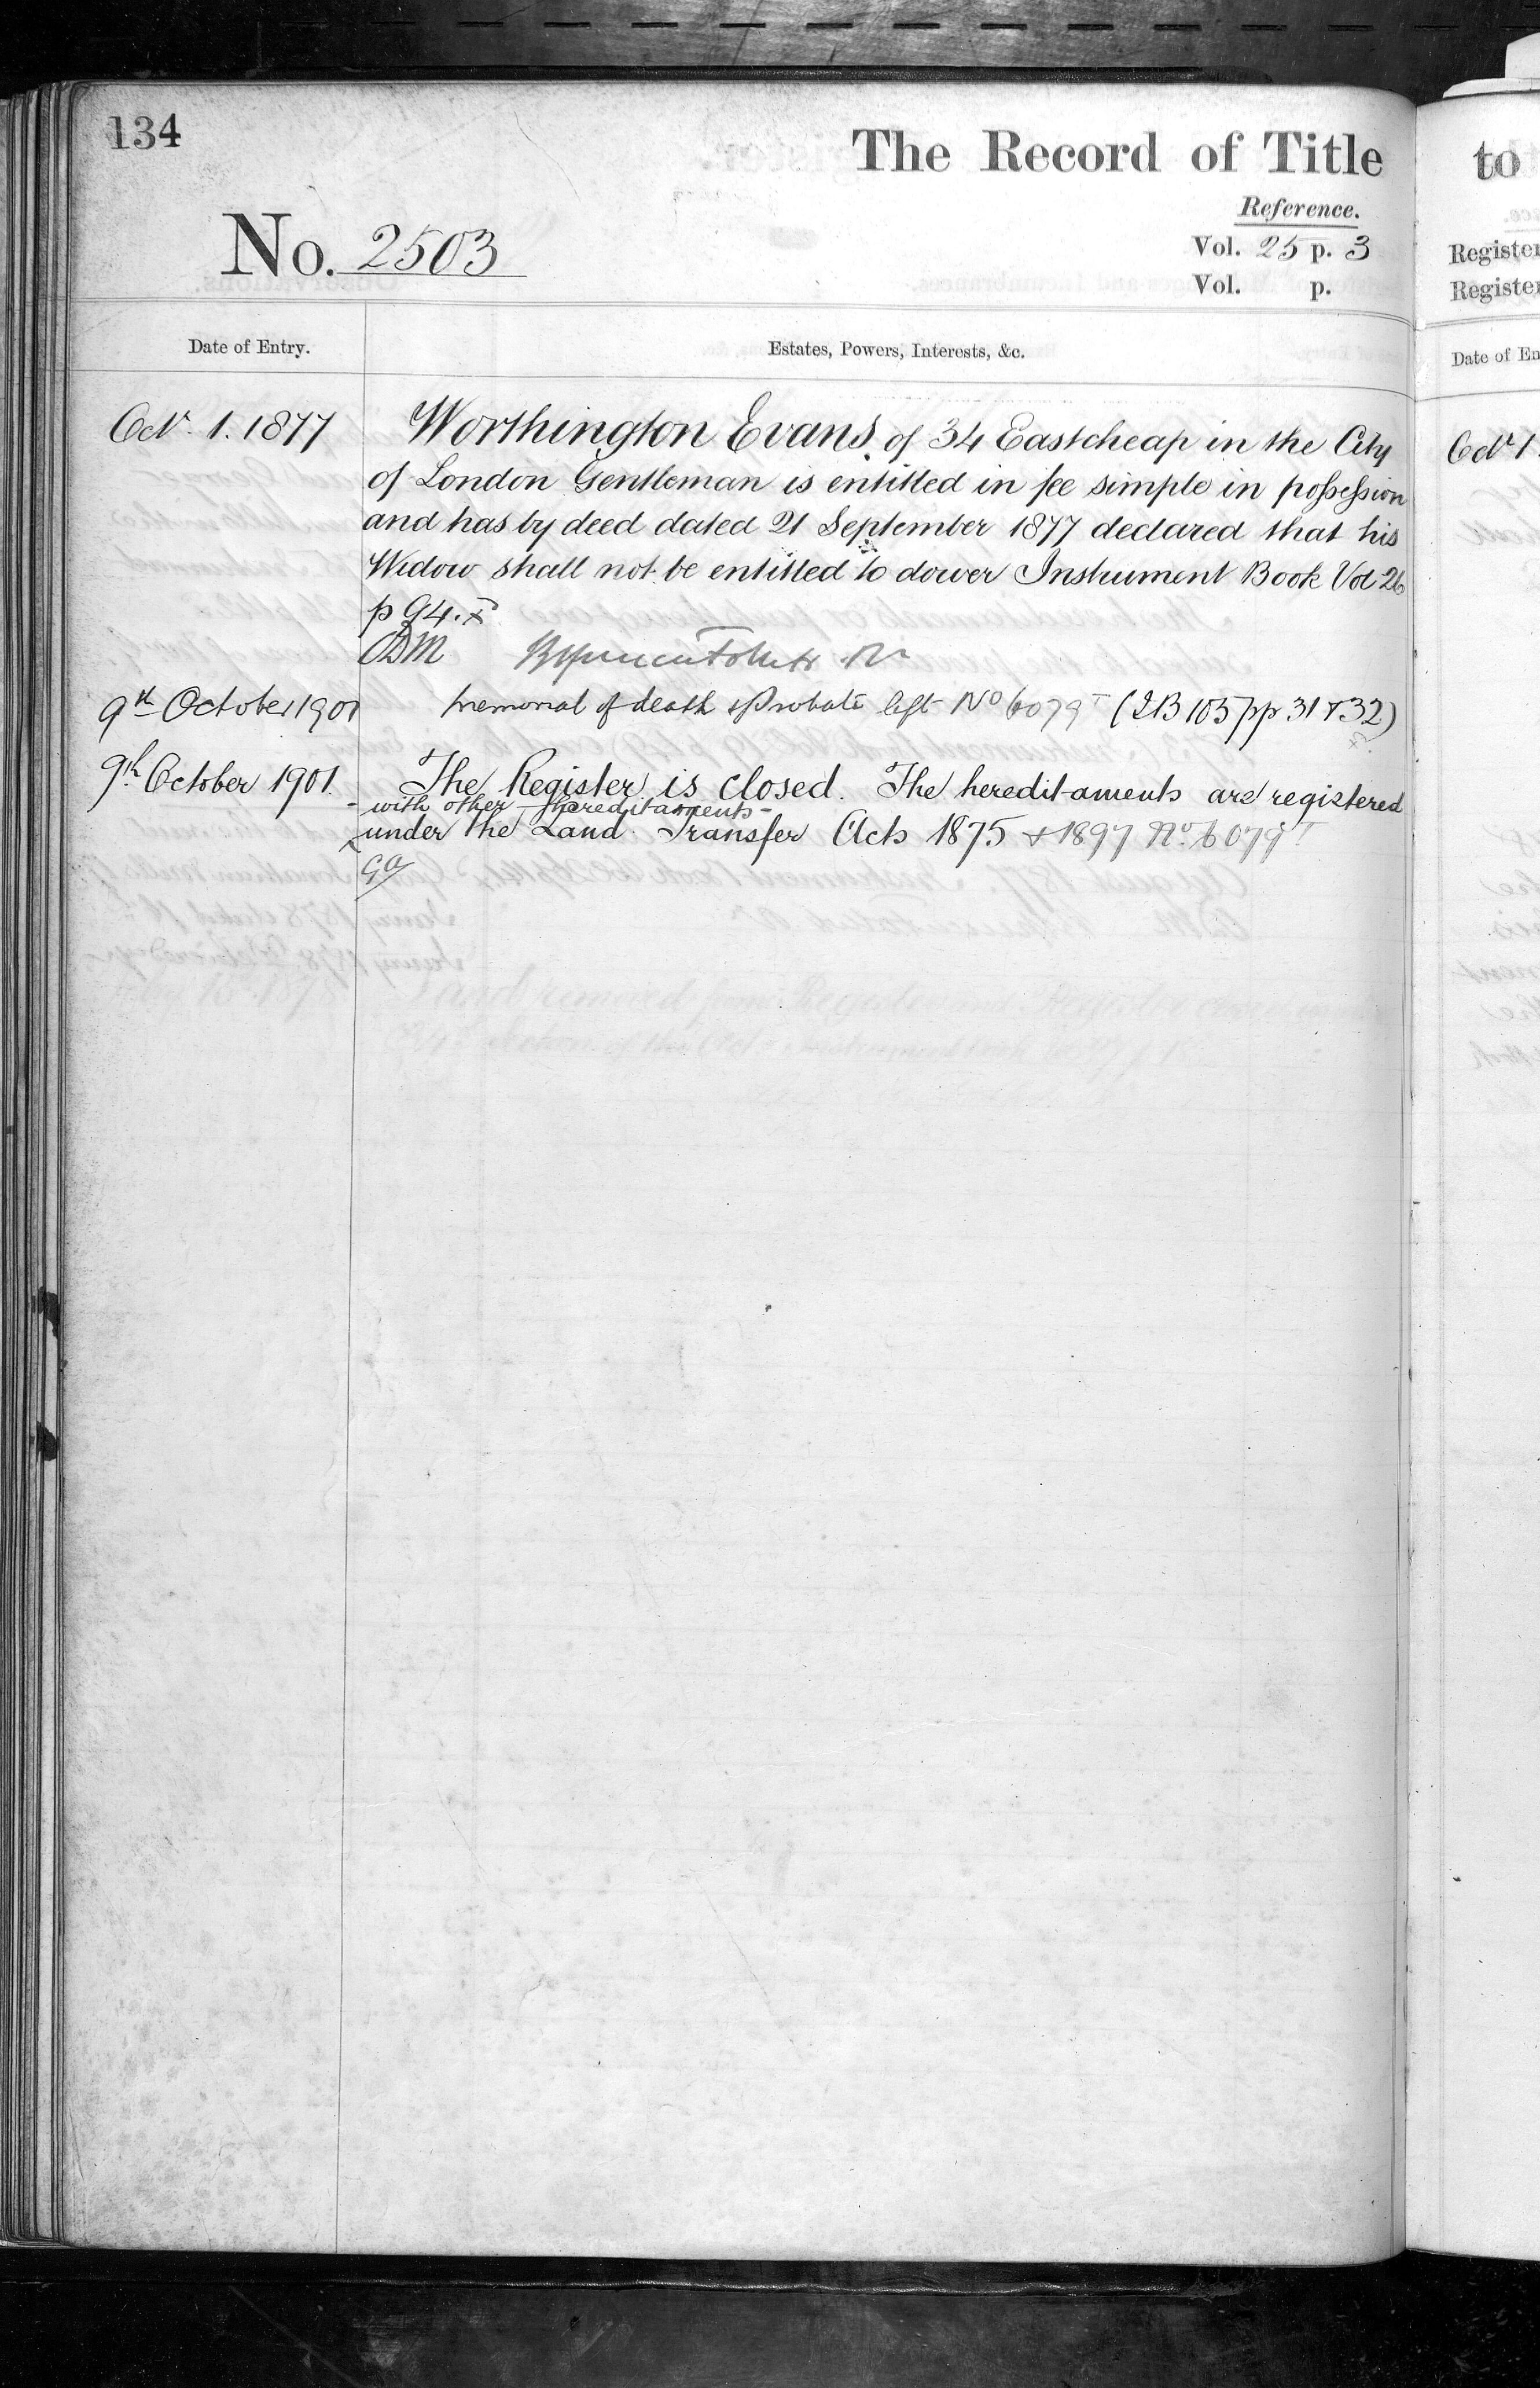 134
The Record of Title
to
Reference.
No. 2503
Vol. 25 p. 3
Register
Vol. p.
Register
Date of Entry.
Estates, Powers, Interests, &c.
Date of En
Octr. 1. 1877
Worthington Evans of 34 Eastcheap in the City
Octr 1.
of London Gentleman is entitled in fee simple in possession
and has by deed dated 21 September 1877 declared that his
Widow shall not be entitled to dower Instrument Book Vol 26
p 94.
9th October 1901
memorial of death & Probate left No 6079 (IB 105 pp 31 & 32)
9th October 1901.
The Register is closed. The hereditaments are registered
- with other hereditaments -
under the Land Transfer Acts 1875 & 1897 No. 6079